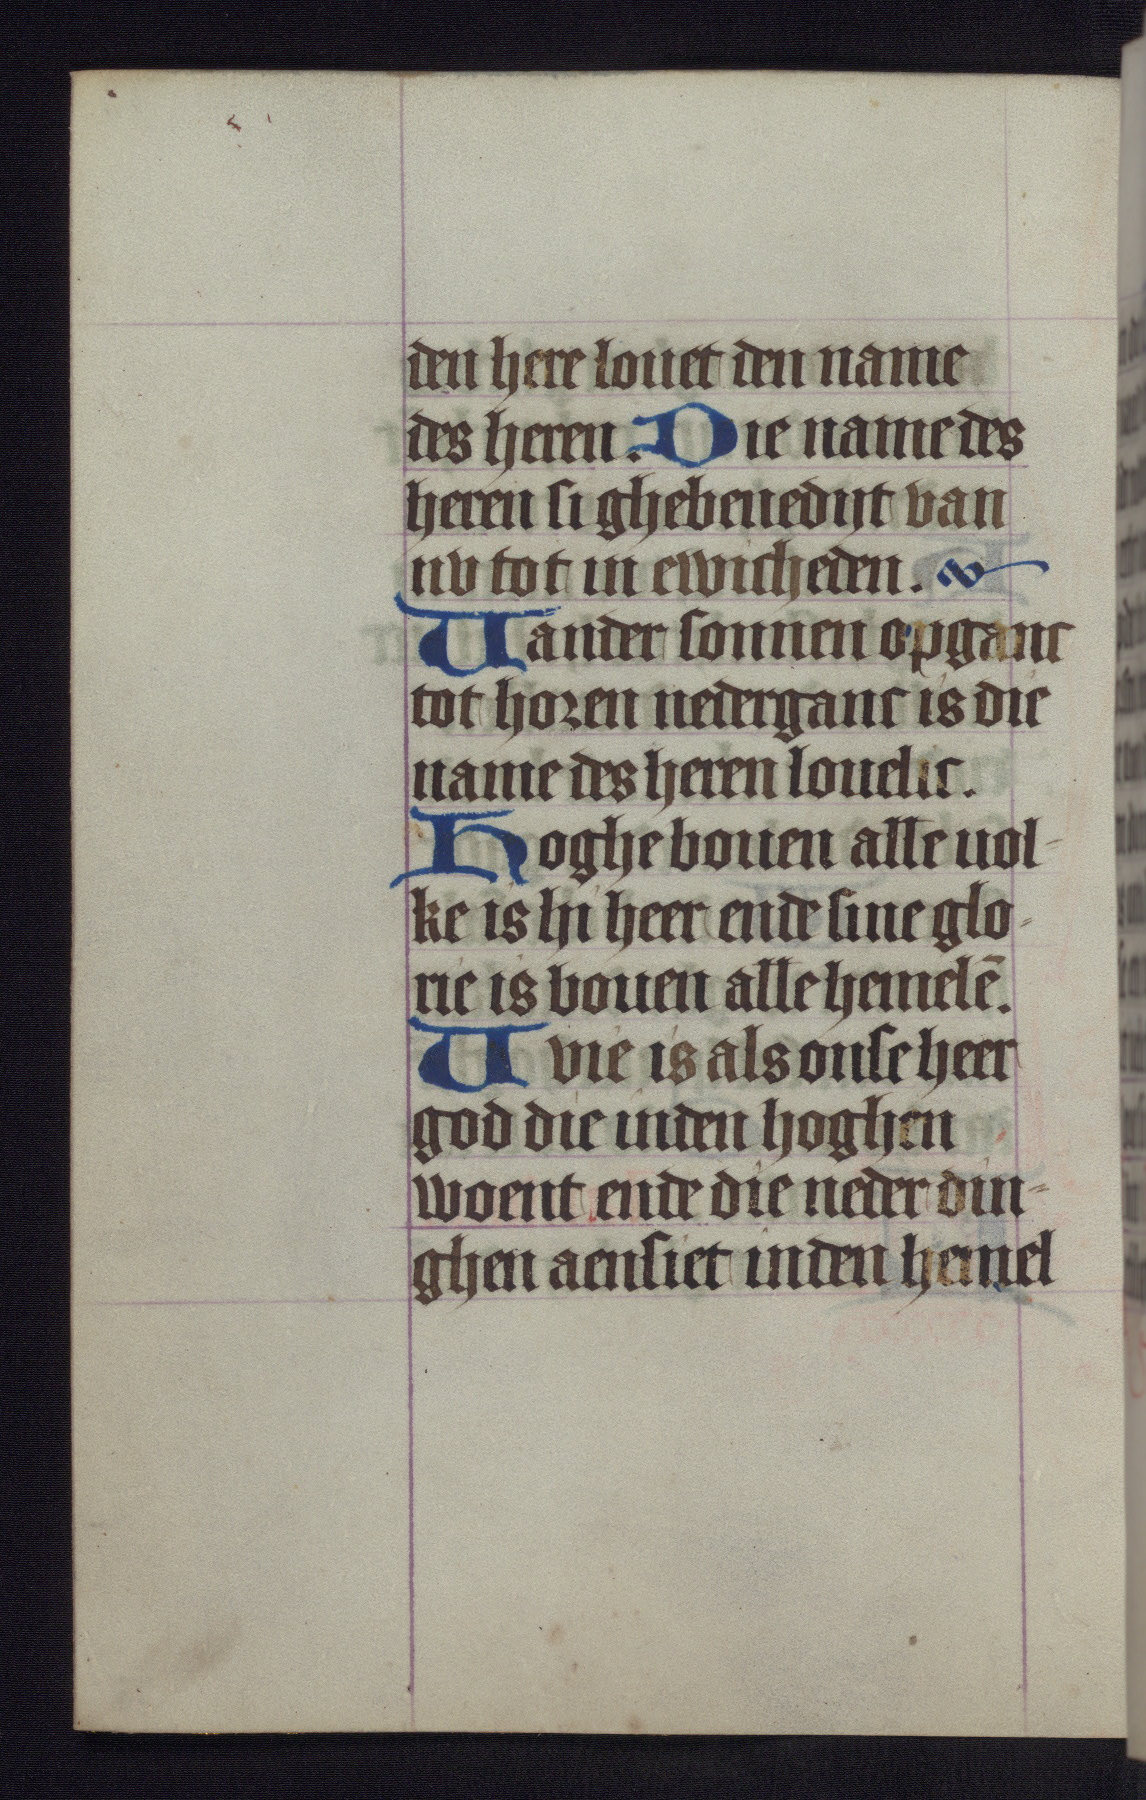 den here louet den name
des heren. Die name des
heren si ghebenedijt van
nv tot in ewicheden.
Uander sonnen opganc
tot horen nederganc is die
name des heren louelic.
Hoghe bouen alle uol-
ke is hi heer ende sine glo-
rie is bouen alle hemelē.
Uvie is als onse heer
god die inden hoghen
woent ende die neder din-
ghen aensiet inden hemel